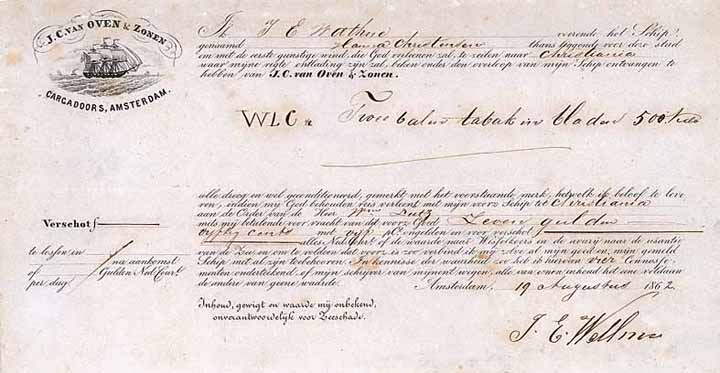 J. C. VAN OVEN & ZONEN
CARGADOORS, AMSTERDAM.
Ik J E voerende het Schip
genaamd Hanna Christensen thans liggende voor deze stad
om met de eerste gunstige wind, die God verleenen zal, te zeilen naar Christiania
waar mijne regte ontlading zijn zal, beken onder den overloop van mijn Schip ontvangen te
hebben van J. C. van Oven & Zonen.
WLC Twee balen tabak in bladen 500
alle droog en wel geconditioneerd, gemerkt met het voorstaande merk, hetwelk ik beloof te leve
ren, indien mij God behouden reis verleent met mijn voorz Schip tot Christiania
aan de Order van de Heer Wm
mits mij betalende voor vracht van dit voorz Goed Zeven gulden
cents met pCt ongelden en voor verschot
alles of de waarde naar Wisselkoers en de avarij naar de usantie
van de Zee en om te voldoen dat voorz is zoo verbind ik mij zelve al mijn goed en mijn gemeld
Schip met al zijn toebehoren. In kennisse der waarheid zoo heb ik hiervan vier Connos
menten onderteekend of mijn schrijver van mijnent wegen, alle van eenen inhoud, het eene voldaan
de andere van geene waarde. Amsterdam, 19 Augustus 1862
Verschot f
te lossen in
of na aankomst
per dag Gulden Ned. Court.
Inhoud, gewigt en waarde mij onbekend,
onverantwoordelijk voor Zeeschade.
J. E.